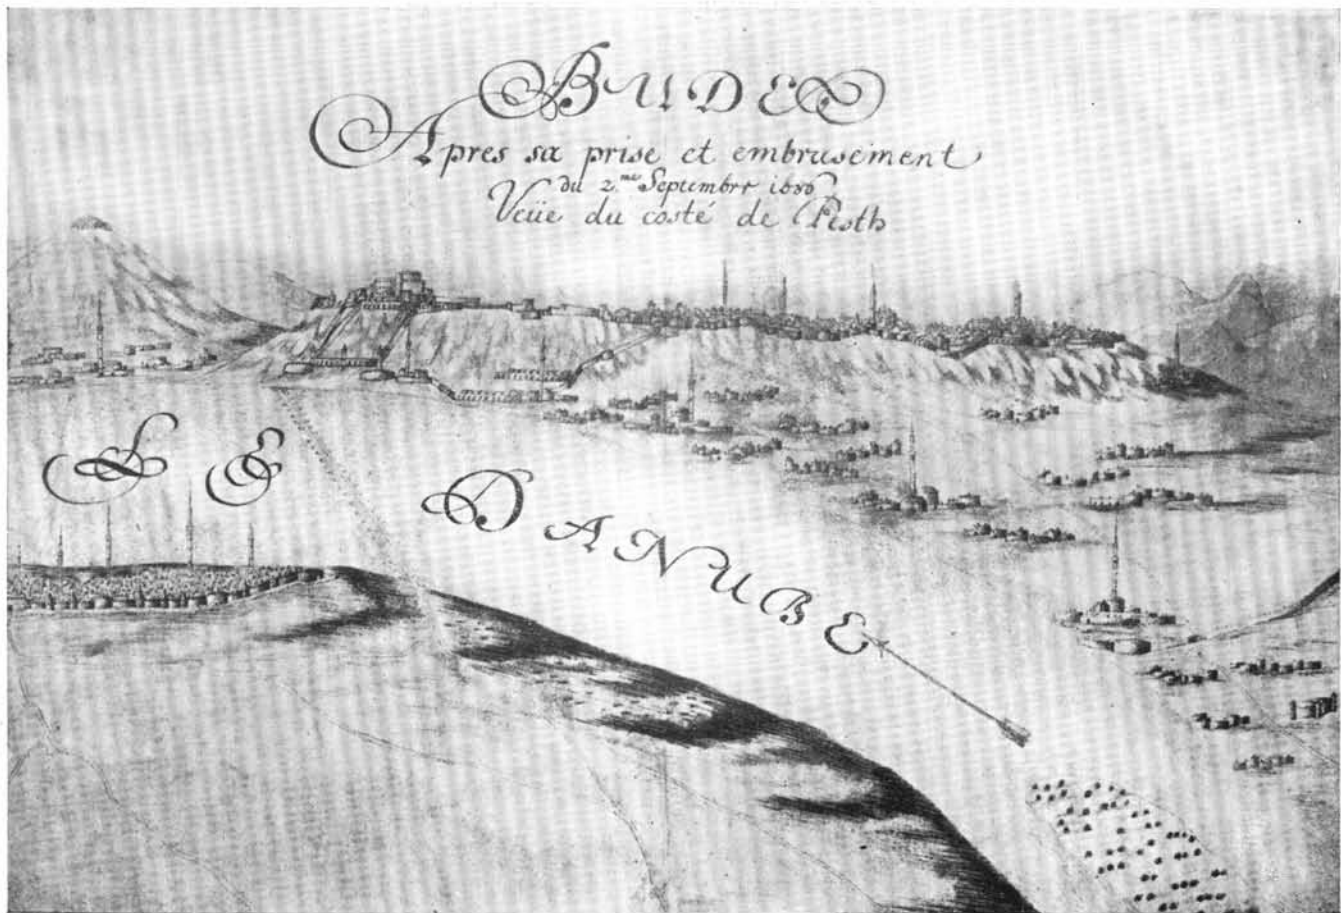 BUDE
Apres sa prise et embrasement
du 2.me Septembre 1686
Veüe du costé de Pesth
LE DANUBE